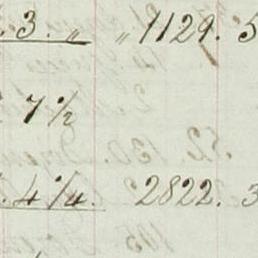 . 3. „ „ 1129. 5
7 ½
. 4 ¼. 2822. 3